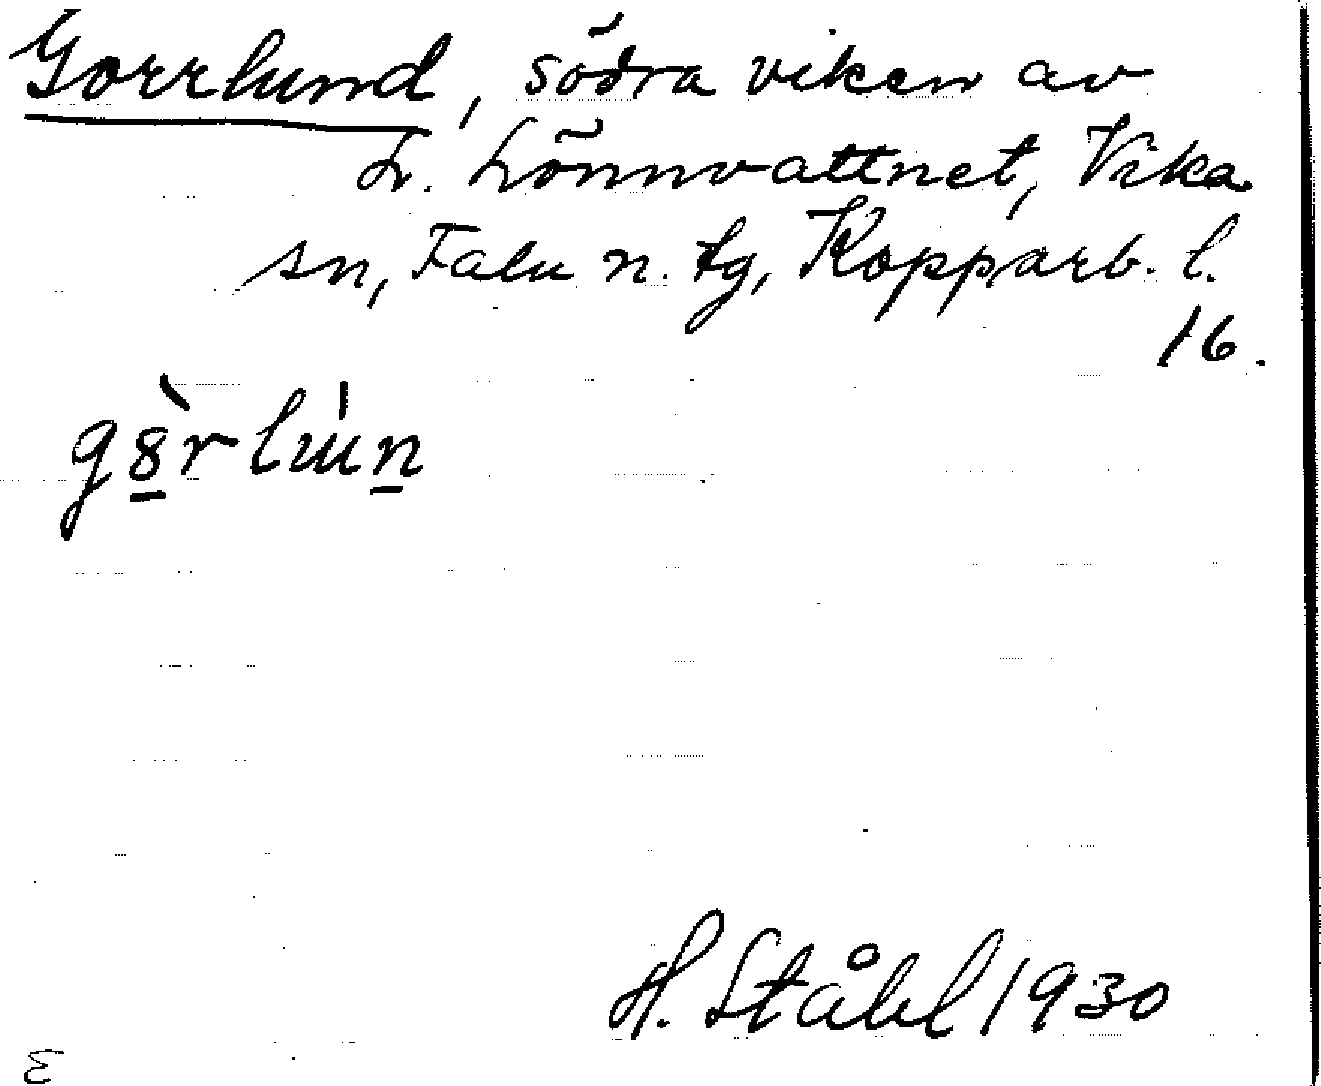 Gorrlund, södra viken av
L. Lönnvattnet, Vika
sn, Falu n. tg, Kopparb. l.
16.
g8̱̀r lɯ̍ṉ
H. Ståhl 1930
ε